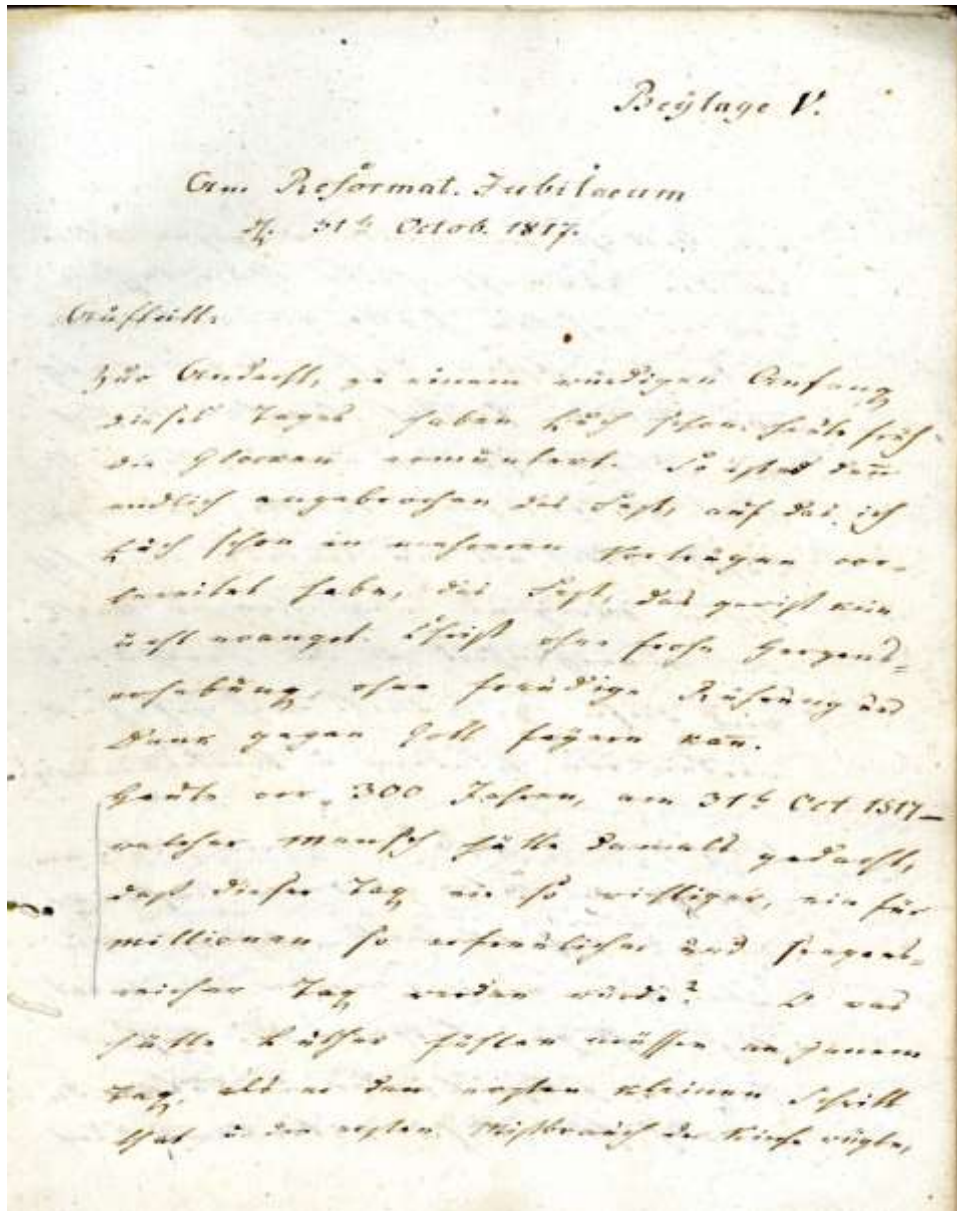 Beÿlage V.
Am Reformat. Jubilaeum
d. 31t Octob. 1817.
Auftritt.
Zur Andacht, zu einem würdigen Anfang
dieses Tages haben Euch schon heute früh
die Glocken ermuntert. So ist es deñ
endlich angebrochen das Fest, auf das ich
Euch schon in mehreren Vorträgen vor-
bereitet habe, das Fest, das gewiß kein
ächt evangel. Christ ohne frohe Herzens-
erhebung, ohne freudige Rührung und
Dank gegen Gott feÿern kañ.
Heute vor 300 Jahren, am 31t Oct 1517 –
welcher Mensch hätte damals gedacht,
daß dieser Tag ein so wichtiger, ein für
Millionen so erfreulicher und seegens-
reicher Tag werden würde? O was
hätte Luther fühlen müssen an jenem
Tag, als er den ersten kleinen Schritt
that u. den ersten Mißbrauch der Kirche rügte,